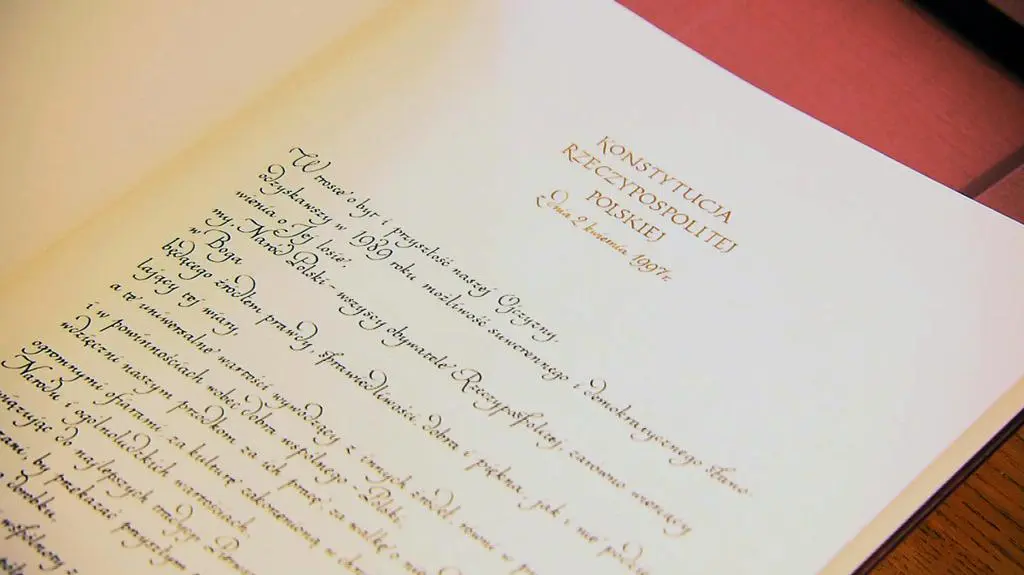 KONSTYTUCJA
RZECZYPOSPOLITEJ
POLSKIEJ
Z dnia 2 kwietnia 1997r.
W trosce o byt i przyszłość naszej Ojczyzny,
odzyskawszy w 1989 roku możliwość suwerennego i demokratycznego stano-
wienia o Jej losie,
my, Naród Polski - wszyscy obywatele Rzeczypospolitej, zarówno wierzący
w Boga
będącego źródłem prawdy, sprawiedliwości, dobra i piękna, jak i nie podzie-
lający tej wiary,
a te uniwersalne wartości wywodzący z innych źródeł, równi w
i w powinnościach wobec dobra wspólnego - Polski,
wdzięczni naszym przodkom za ich pracę, za walkę o
ogromnymi ofiarami, za kulturę zakorzenioną w
Narodu i ogólnoludzkich wartościach,
nawiązując do najlepszych tradycji
by przekazać przyszłym
dorobku,